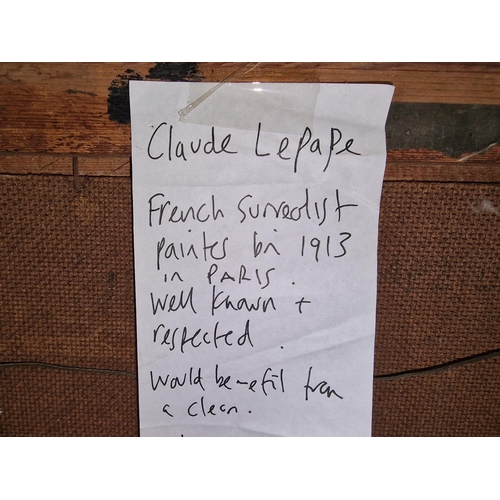 Claude Lepape
French surrealist
painter bn 1913
in PARIS.
Well known +
respected.
Would benefit from
a clean.